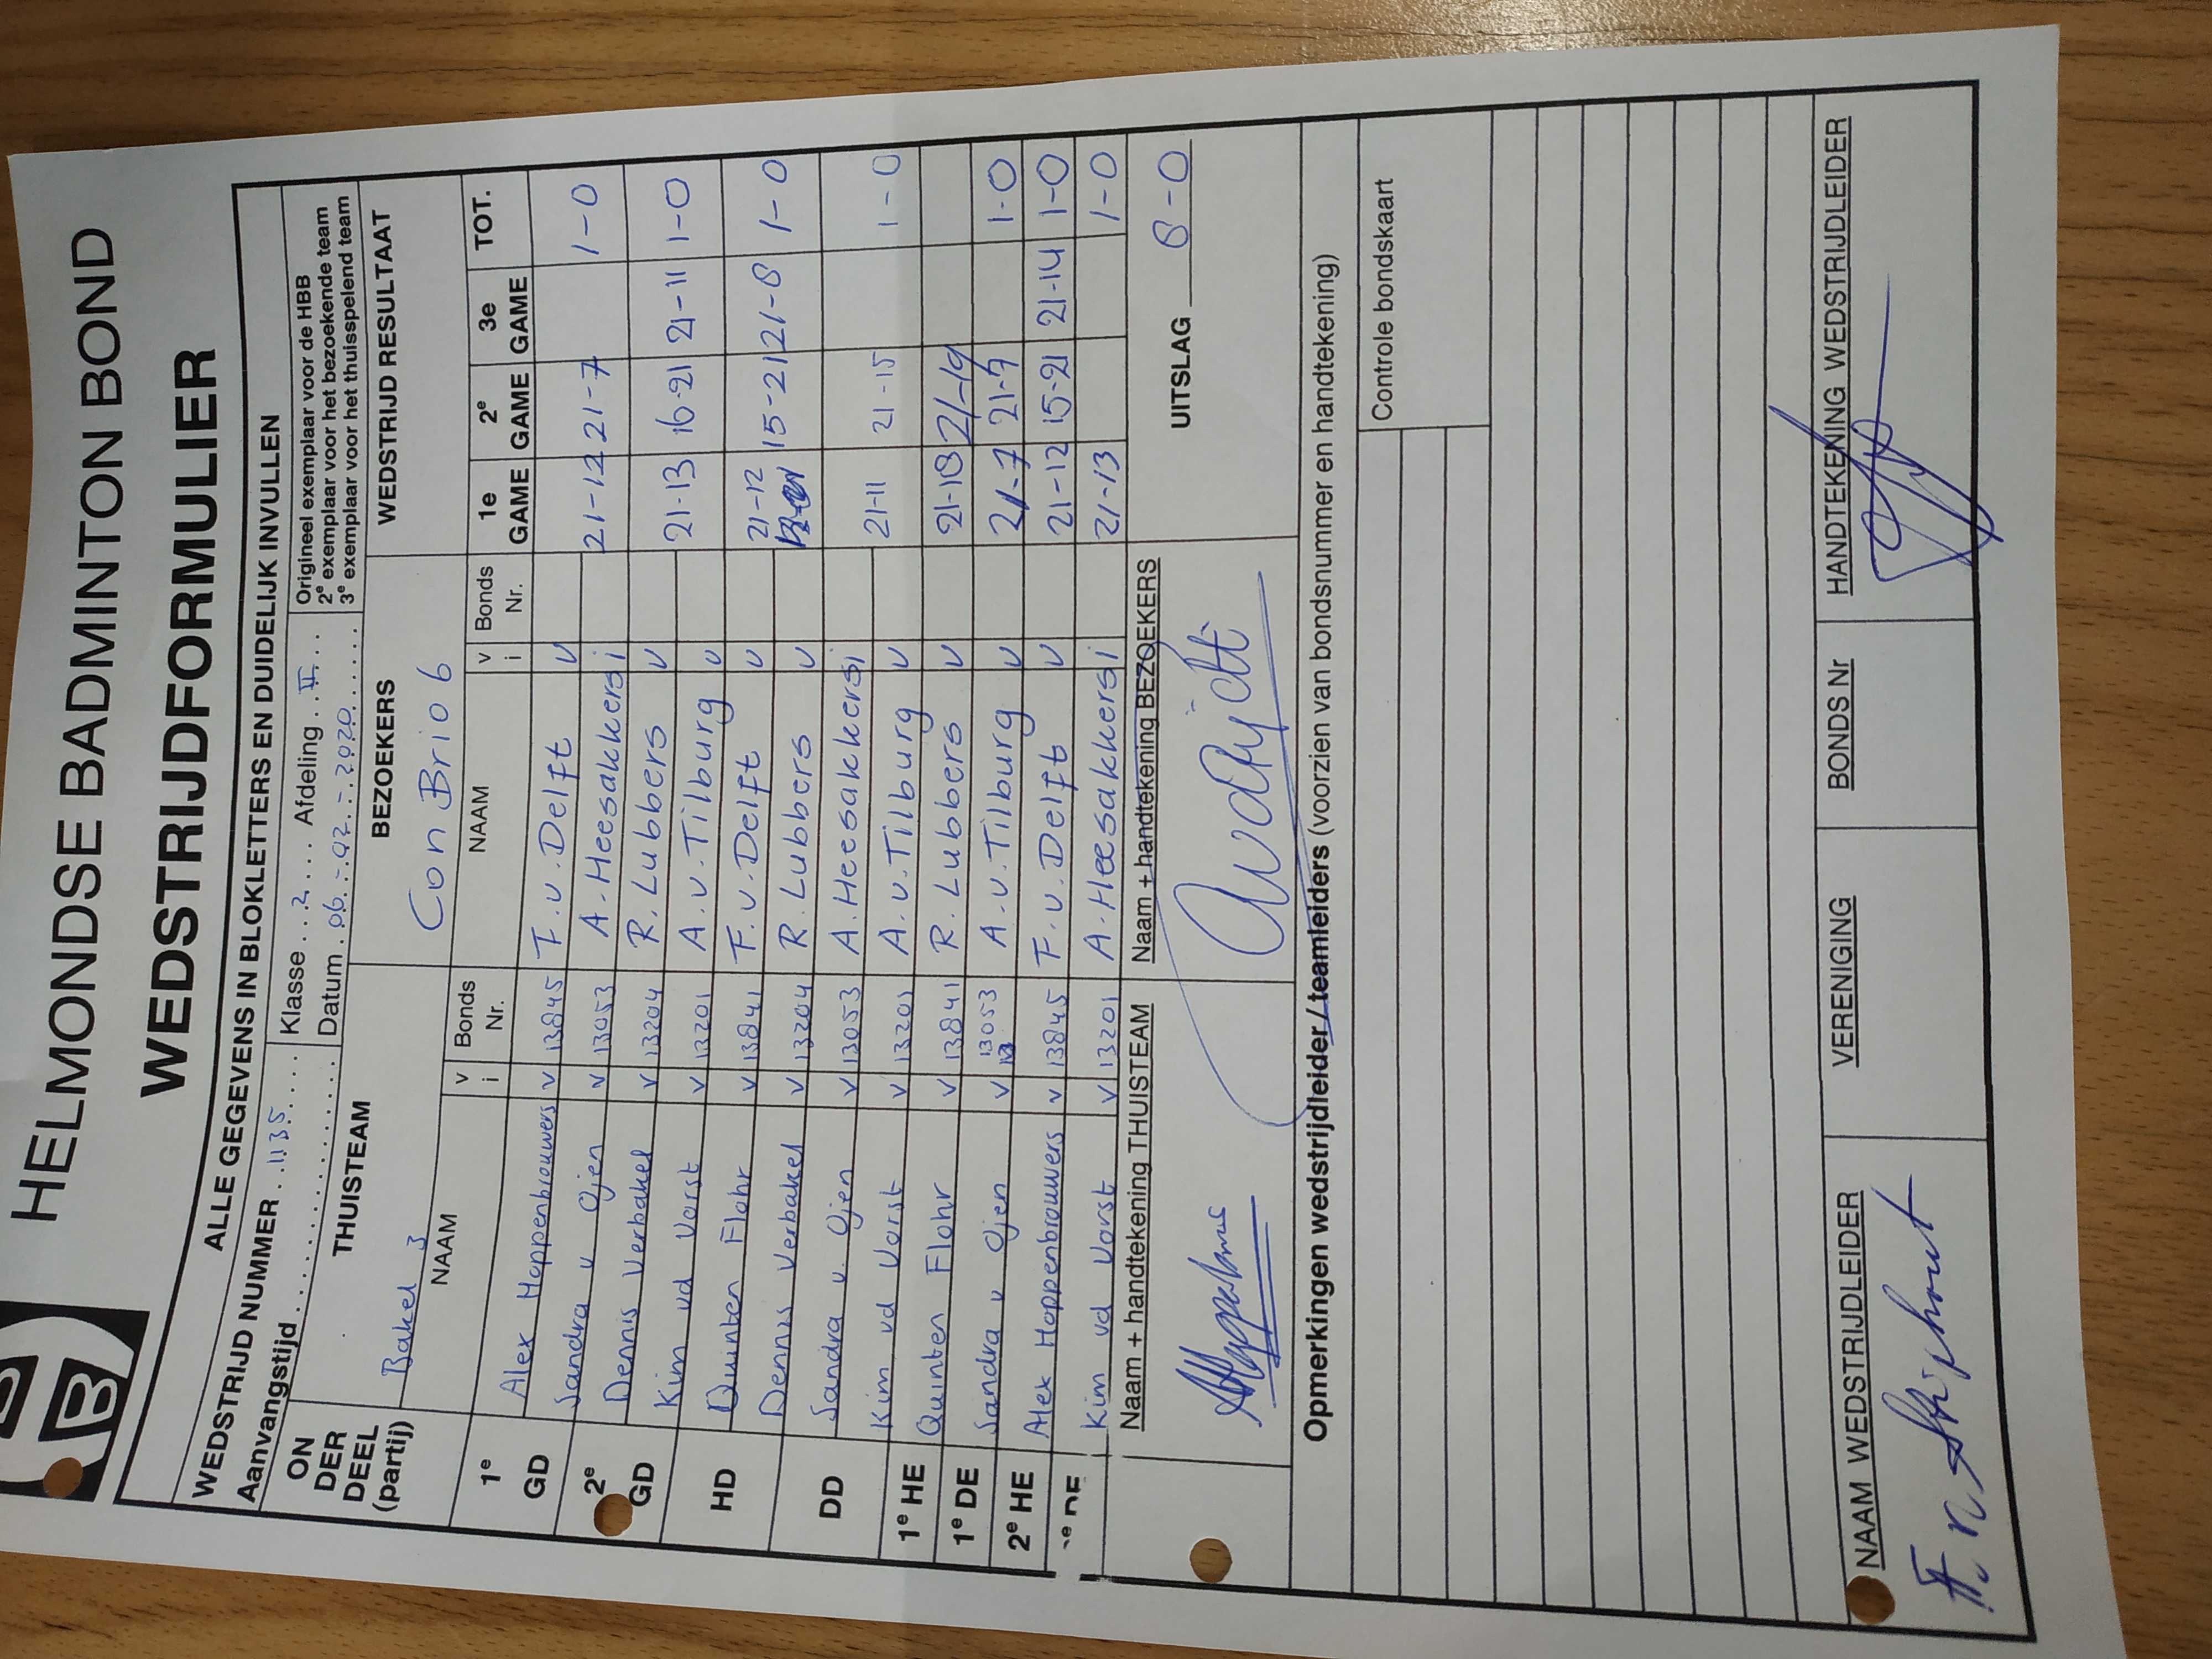 HELMONDSE BADMINTON BOND
WEDSTRIJDFORMULIER
ALLE GEGEVENS IN BLOKLETTERS EN DUIDELIJK INVULLEN
WEDSTRIJD NUMMER ..1135.....
Aanvangstijd ..................
Klasse ..2.... Afdeling ..II...
Datum .06.-.02.-.2020......
Origineel exemplaar voor de HBB
2e exemplaar voor het bezoekende team
3e exemplaar voor het thuisspelend team
ON DER DEEL (partij) THUISTEAM BEZOEKERS WEDSTRIJD RESULTAAT
Bakel 3 Con Brio 6
NAAM v i Bonds Nr. NAAM v i Bonds Nr. 1e GAME 2e GAME 3e GAME TOT.
1e GD Alex Hoppenbrouwers v 13845 F. v. Delft v
Sandra v Ojen v 13053 A. Heesakkers i 21-12 21-7 1-0
2e GD Dennis Verbakel v 13204 R. Lubbers v
Kim vd Vorst v 13201 A. v. Tilburg v 21-13 16-21 21-11 1-0
HD Quinten Flohr v 13841 F. v. Delft v 21-12
Dennis Verbakel v 13204 R. Lubbers v 15-21 21-8 1-0
DD Sandra v. Ojen v 13053 A. Heesakkers i
Kim vd Vorst v 13201 A. v. Tilburg v 21-11 21-15 1-0
1e HE Quinten Flohr v 13841 R. Lubbers v 21-18 21-19
1e DE Sandra v Ojen v 13053 A. v. Tilburg v 21-7 21-9 1-0
2e HE Alex Hoppenbrouwers v 13845 F. v. Delft v 21-12 15-21 21-14 1-0
DE Kim vd Vorst v 13201 A. Heesakkers i 21-13 1-0
Naam + handtekening THUISTEAM Naam + handtekening BEZOEKERS
UITSLAG 8-0
Opmerkingen wedstrijdleider / teamleiders (voorzien van bondsnummer en handtekening)
Controle bondskaart
NAAM WEDSTRIJDLEIDER VERENIGING BONDS Nr HANDTEKENING WEDSTRIJDLEIDER